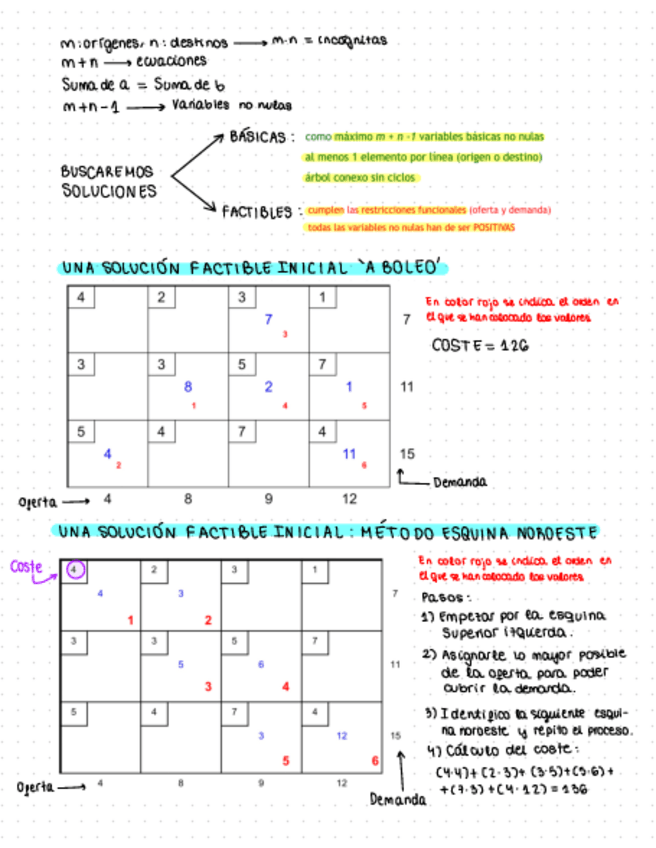 m: orígenes, n: destinos → m·n = incógnitas
m+n → ecuaciones
Suma de a = Suma de b
m+n-1 → Variables no nulas
BUSCAREMOS SOLUCIONES
BÁSICAS: como máximo m + n -1 variables básicas no nulas
al menos 1 elemento por línea (origen o destino)
árbol conexo sin ciclos
FACTIBLES: cumplen las restricciones funcionales (oferta y demanda)
todas las variables no nulas han de ser POSITIVAS
UNA SOLUCIÓN FACTIBLE INICIAL `A BOLEO'
4 2 3 1
7 7
3
3 3 5 7
8 2 1 11
1 4 5
5 4 7 4
4 11 15
2 6
Oferta → 4 8 9 12
Demanda
En color rojo se indica el orden en
el que se han colocado los valores
COSTE = 126
UNA SOLUCIÓN FACTIBLE INICIAL: MÉTODO ESQUINA NOROESTE
Coste
4 2 3 1
4 3 7
1 2
3 3 5 7
5 6 11
3 4
5 4 7 4
3 12 15
5 6
Oferta → 4 8 9 12
Demanda
En color rojo se indica el orden en
el que se han colocado los valores
Pasos:
1) Empezar por la esquina
Superior izquierda.
2) Asignarle lo mayor posible
de la oferta para poder
cubrir la demanda.
3) Identifico la siguiente esqui-
na noroeste y repito el proceso.
4) Cálculo del coste:
(4·4)+(2·3)+(3·5)+(5·6)+
+(7·3)+(4·12)=136